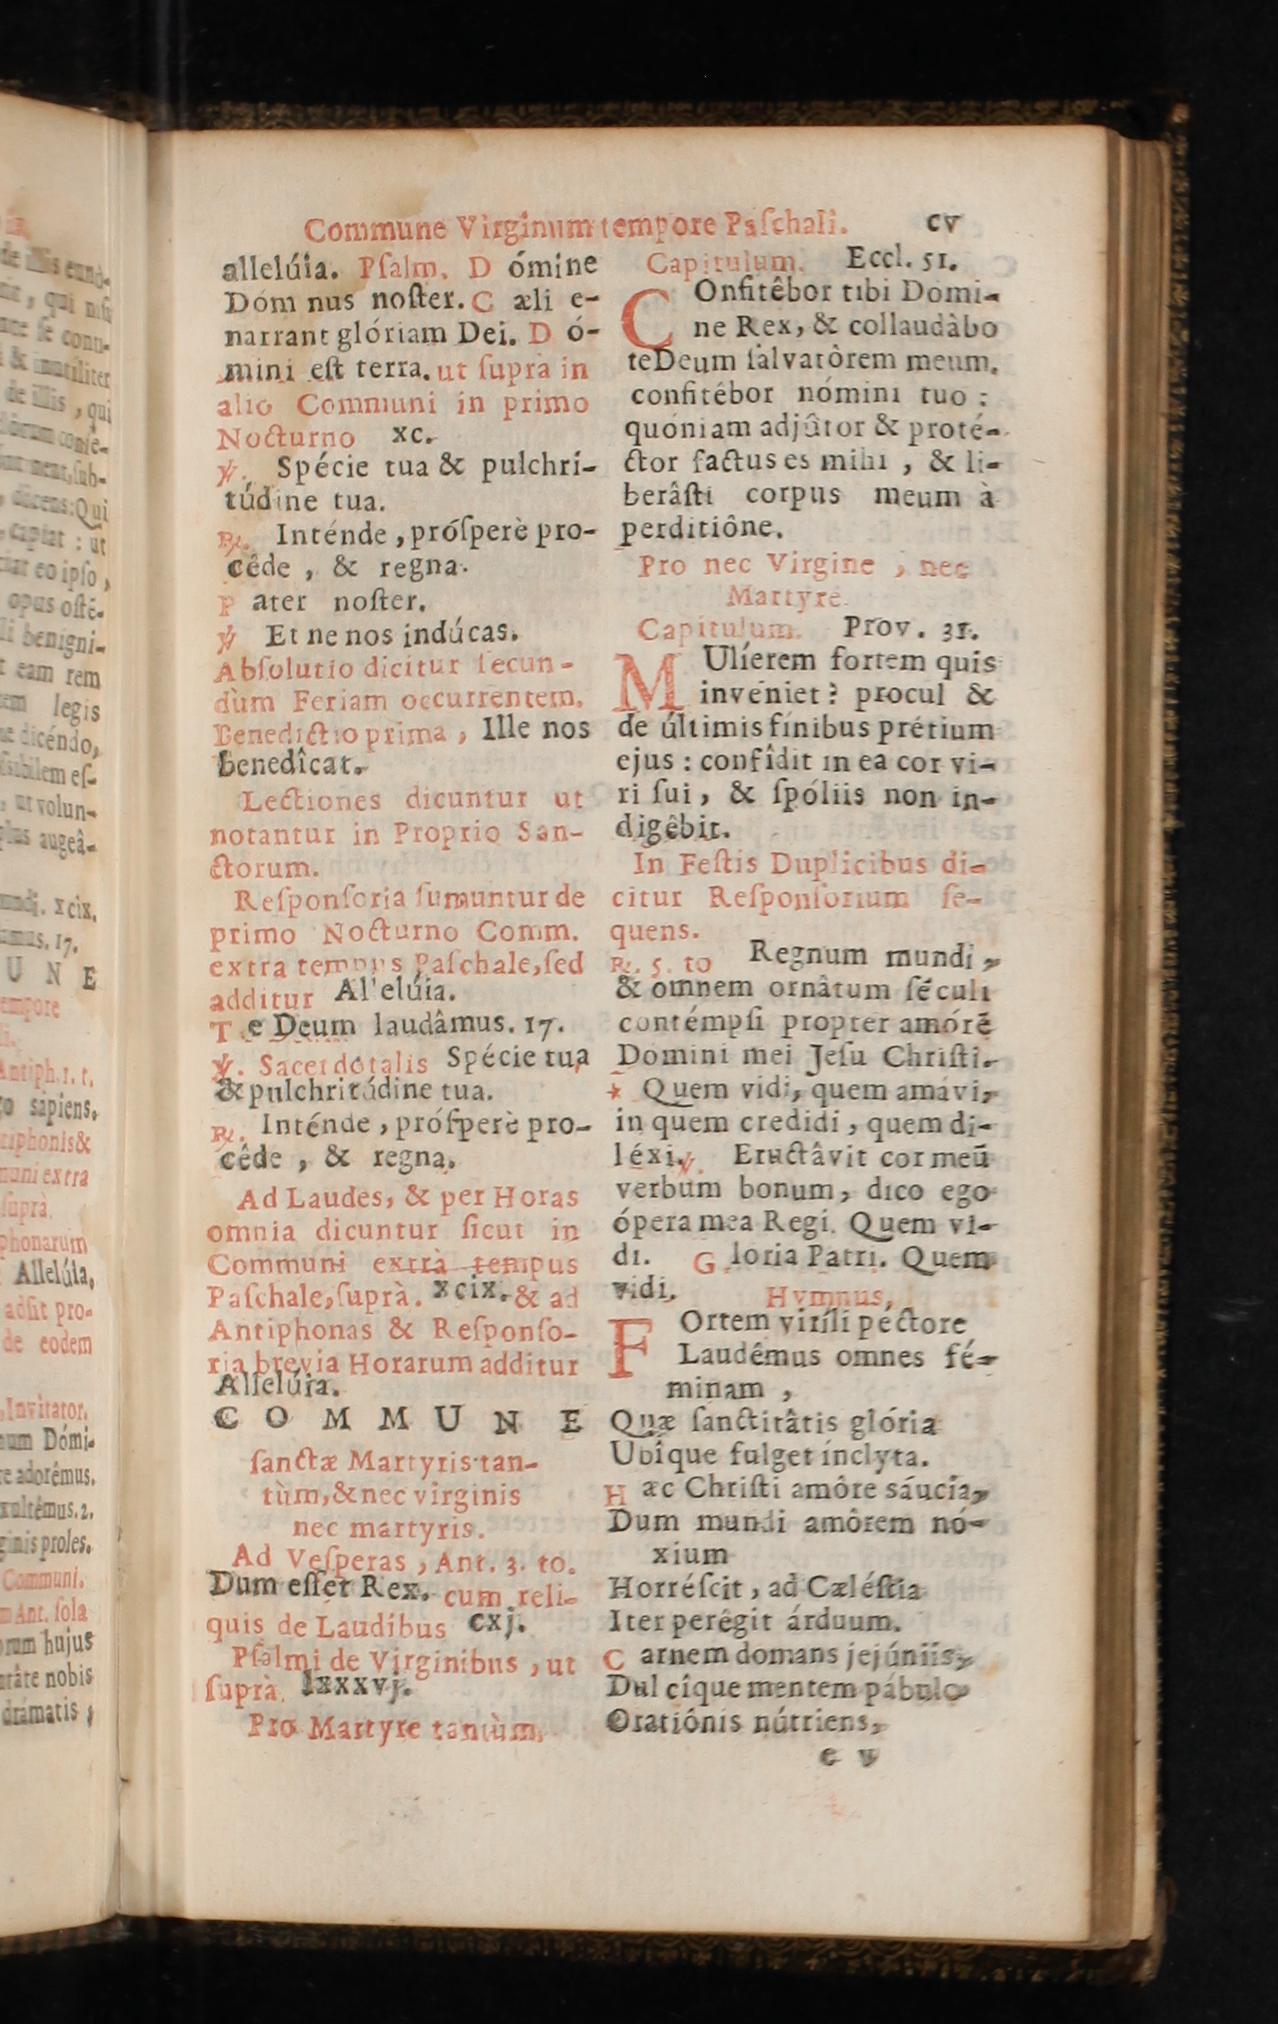 Commune Virginum tempore Paſchali. cv
allelúia. Pſalm. D ómine
Dóm nus noſter. C æli e-
narrant glóriam Dei. D ó-
mini eſt terra. ut ſuprà in
alio Communi in primo
Nocturno xc.
℣. Spécie tua & pulchri-
túdine tua.
℟. Inténde, próſperè pro-
cêde, & regna.
P ater noſter.
℣ Et ne nos indúcas.
Abſolutio dicitur ſecun-
dùm Feriam occurrentem.
Benedictio prima, Ille nos
benedîcat.
Lectiones dicuntur ut
notantur in Proprio San-
ctorum.
Reſponſoria ſumuntur de
primo Nocturno Comm.
extra tempus Paſchale, ſed
additur Al'elúia.
T e Deum laudâmus. 17.
℣. Sacerdotalis Spécie tua
& pulchritúdine tua.
℟. Inténde, próſperè pro-
cêde, & regna.
Ad Laudes, & per Horas
omnia dicuntur ſicut in
Communi extrà tempus
Paſchale, ſuprà. xcix. & ad
Antiphonas & Reſponſo-
ria brevia Horarum additur
Allelúia.
C O M M U N E
ſanctæ Martyris tan-
tùm, & nec virginis
nec martyris.
Ad Veſperas, Ant. 3. to.
Dum eſſet Rex. cum reli-
quis de Laudibus cxj.
Pſalmi de Virginibus, ut
ſuprà. lxxxvj.
Pro Martyre tantùm.
Capitulum. Eccl. 51.
COnfitêbor tibi Domi-
ne Rex, & collaudàbo
te Deum ſalvatôrem meum.
confitébor nómini tuo:
quóniam adjûtor & proté-
ctor factus es mihi, & li-
berâſti corpus meum à
perditiône.
Pro nec Virgine, nec
Martyre.
Capitulum. Prov. 31.
MUlíerem fortem quis
invéniet? procul &
de últimis fínibus prétium
ejus: confîdit in ea cor vi-
ri ſui, & ſpóliis non in-
digêbit.
In Feſtis Duplicibus di-
citur Reſponſorium ſe-
quens.
℟. 5. to Regnum mundi,
& omnem ornâtum ſéculi
contémpſi propter amórē
Domini mei Jeſu Chriſti.
* Quem vidi, quem amávi,
in quem credidi, quem di-
léxi. ℣. Eructâvit cor meū
verbum bonum, dico ego
ópera mea Regi. Quem vi-
di. G loria Patri. Quem
vidi. Hymnus,
FOrtem viríli péctore
Laudêmus omnes fé-
minam,
Quæ ſanctitâtis glória
Ubîque fulget ínclyta.
H æc Chriſti amôre sáucia,
Dum mundi amôrem nó-
xium
Horréſcit, ad Cæléſtia
Iter perêgit árduum.
C arnem domans jejúniis,
Dulcîque mentem pábulo
Oratiônis nútriens,
e v